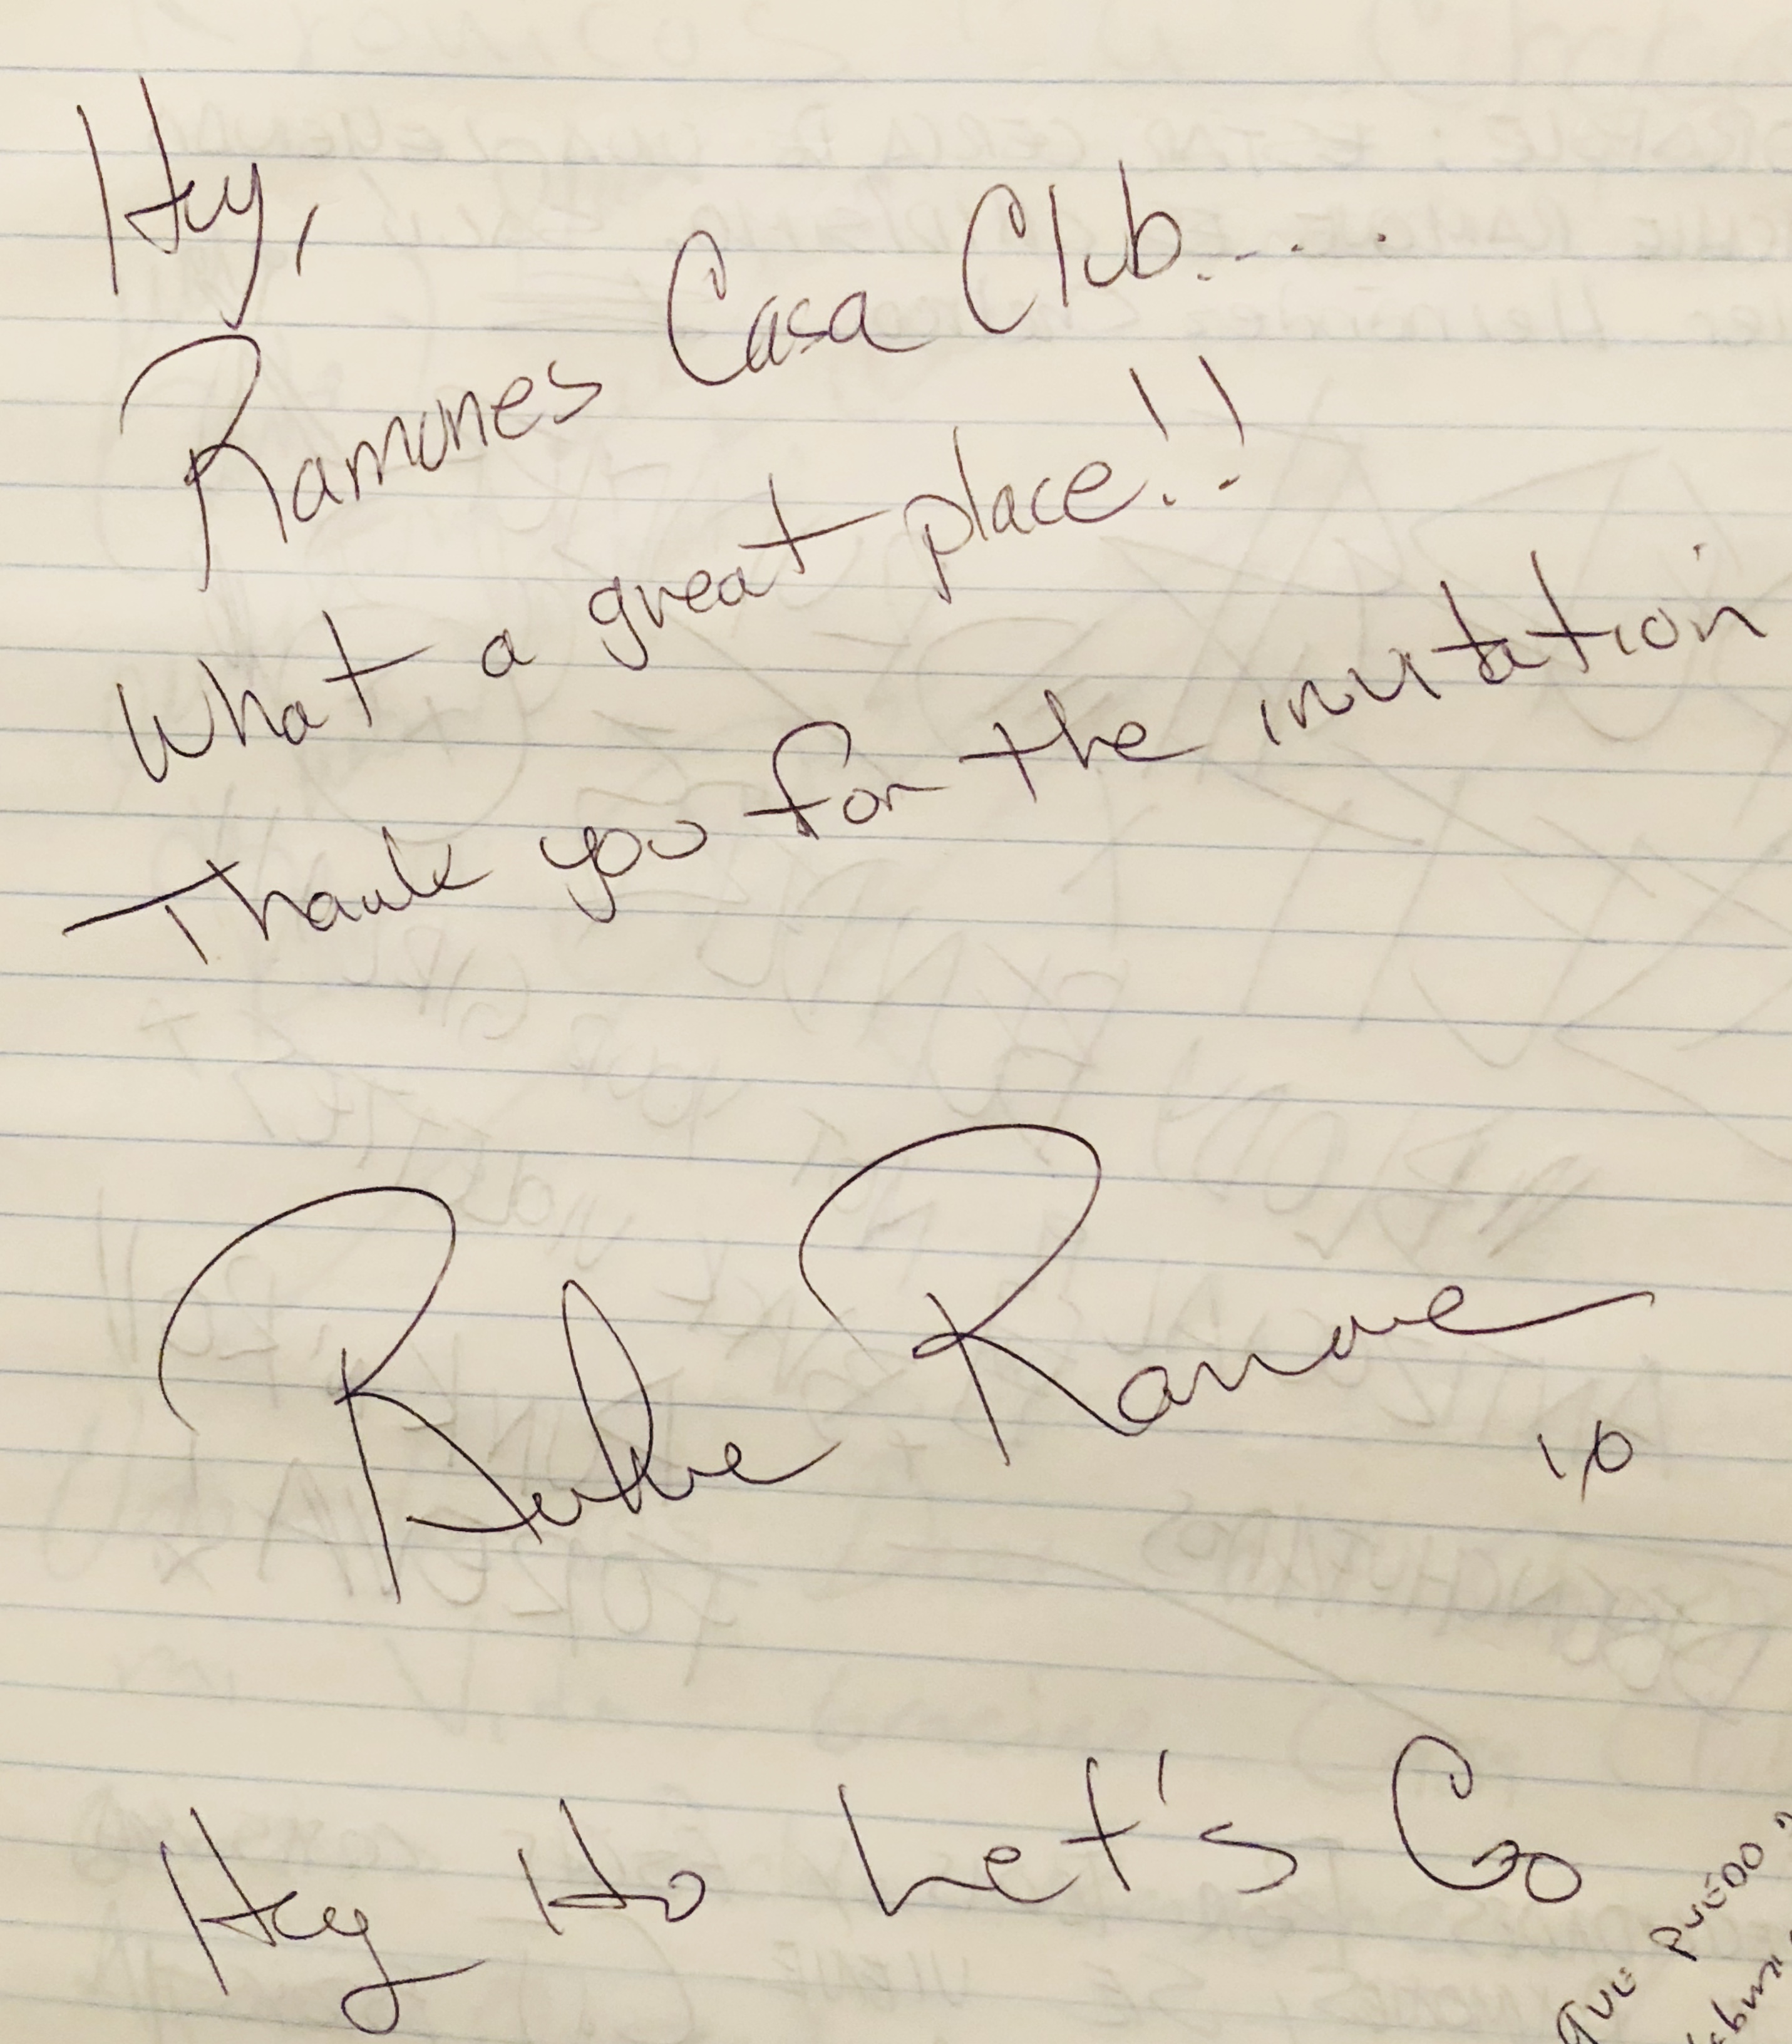 Hey,
Ramones Casa Club.....
What a great place!!
Thank you for the invitation
Richie Ramone
Hey Ho Let's Go
QUE PUEDO